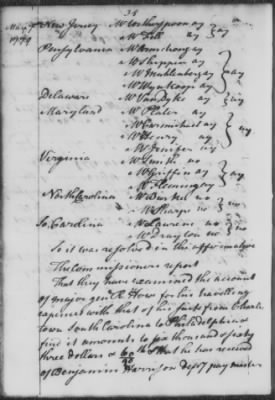 38
May 7
1779
New Jersey Mr Witherspoon ay } ay
Mr Fell ay
Pensylvania Mr Armstrong ay
Mr Shippen ay
Mr Muhlenberg ay } ay
Mr Wynkoop ay
Delaware Mr Van Dyke ay } ay
Maryland Mr Plater ay
Mr Carmichael ay } ay
Mr Henry ay
Mr Jenifer ay
Virginia Mr Smith no
Mr Griffin ay } ay
Mr Fleming ay
North Carolina Mr Burke no } no
Mr Sharpe no
So Carolina Mr Laurens no } no
Mr Drayton no
So it was resolved in the affirmative
The Commissioners report
That they have examined the account
of major genl R Howe for his travelling
expences with that of his suit from Charles
town South Carolina to Philadelphia &
find it amounts to thousand & sixty
three dollars & 60/90ths that he has received
of Benjamin Harrison depy pay master